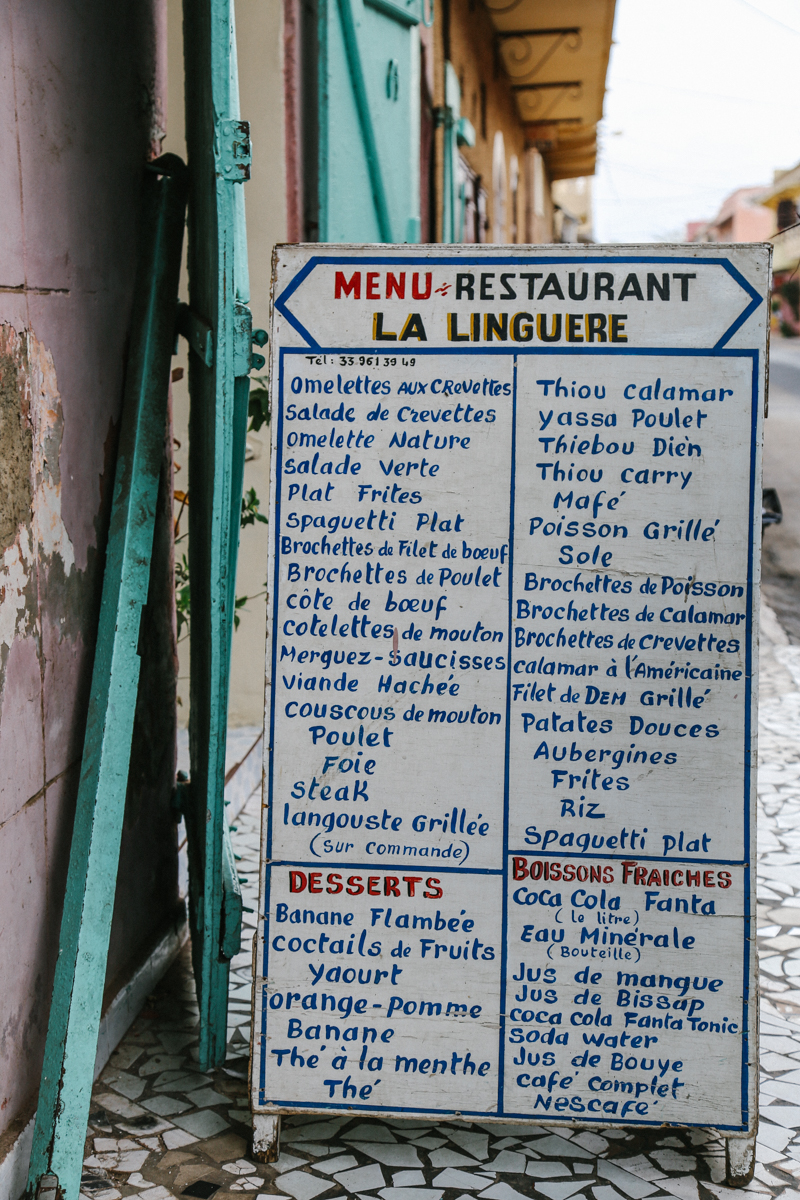 MENU RESTAURANT
LA LINGUERE
Tél : 33.961 39 49
Omelettes AUX CREVETTES
Salade de Crevettes
Omelette Nature
Salade Verte
Plat Frites
Spaguetti Plat
Brochettes de Filet de bœuf
Brochettes de Poulet
côte de bœuf
cotelettes de mouton
Merguez-Saucisses
Viande Hachée
Couscous de mouton
Poulet
Foie
Steak
langouste Grillée
(Sur commande)
Thiou Calamar
Yassa Poulet
Thiebou Dièn
Thiou Carry
Mafé
Poisson Grillé
Sole
Brochettes de Poisson
Brochettes de Calamar
Brochettes de crevettes
calamar à l'Américaine
Filet de DEM Grillé
Patates Douces
Aubergines
Frites
Riz
Spaguetti plat
DESSERTS
Banane Flambée
coctails de Fruits
Yaourt
orange-Pomme
Banane
Thé à la menthe
Thé
BOISSONS FRAICHES
Coca Cola Fanta
(le litre)
Eau Minérale
(Bouteille)
Jus de mangue
Jus de Bissap
coca cola Fanta Tonic
Soda Water
Jus de Bouye
café complet
Nescafé